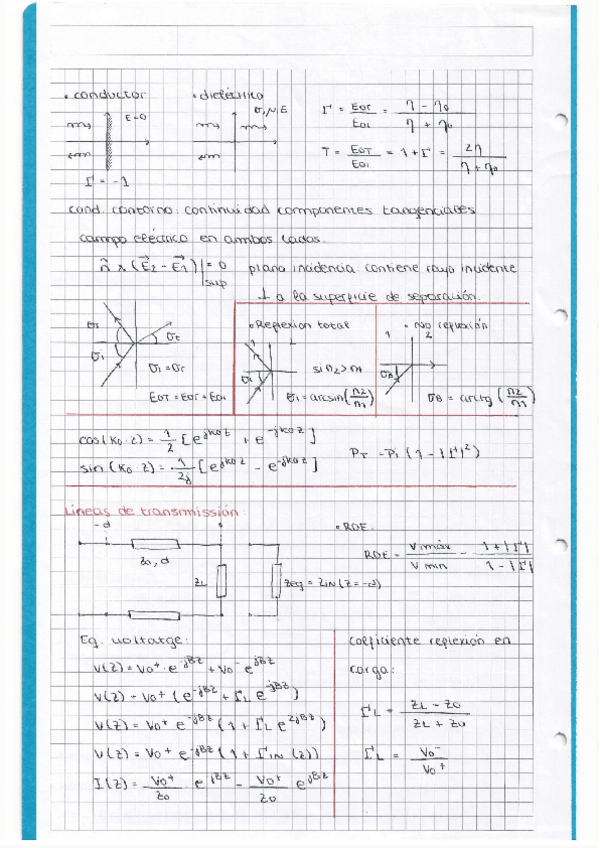 • conductor
E=0
Γ = -1
• dieléctrico
σ, μ, ε
Γ = E0r / E0i = (η - η0) / (η + η0)
T = E0T / E0i = 1 + Γ = 2η / (η + η0)
cond. contorno: continuidad componentes tangenciales
campo eléctrico en ambos lados.
n̂ × (E⃗2 - E⃗1)|sup = 0 plano incidencia contiene rayo incidente
⊥ a la superficie de separación.
θr
θi
θt
θi = θr
E0T = E0r + E0i
• Reflexion total
1 2
θi
si n2 > n1
θi = arcsin(n2/n1)
• No reflexión
1 2
θB
θB = arctg(n2/n1)
cos(k0·z) = 1/2 [e^jk0z + e^-jk0z]
sin(k0·z) = 1/2j [e^jk0z - e^-jk0z]
PT = Pi (1 - |Γ|²)
Lineas de transmissión:
-d
0
Z0, d
ZL
Zeq = ZIN (z = -d)
• ROE.
ROE = V máx / V min = (1 + |Γ|) / (1 - |Γ|)
Eq. voltatge:
V(z) = V0+ · e^-jBz + V0- e^jBz
V(z) = V0+ (e^-jBz + ΓL e^-jBz)
V(z) = V0+ e^-jBz (1 + ΓL e^2jBz)
V(z) = V0+ e^-jBz (1 + ΓIN (z))
I(z) = V0+/Z0 e^jBz - V0+/Z0 e^jBz
coeficiente reflexión en
carga:
ΓL = (ZL - Z0) / (ZL + Z0)
ΓL = V0- / V0+